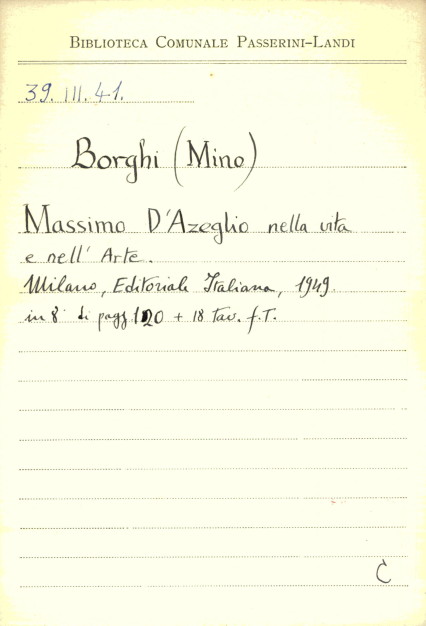 BIBLIOTECA COMUNALE PASSERINI-LANDI
39. III. 41.
Borghi (Mino)
Massimo D'Azeglio nella vita
e nell' Arte.
Milano, Editoriale Italiana, 1949.
in 8° di pagg 120 + 18 tav. f.T.
C